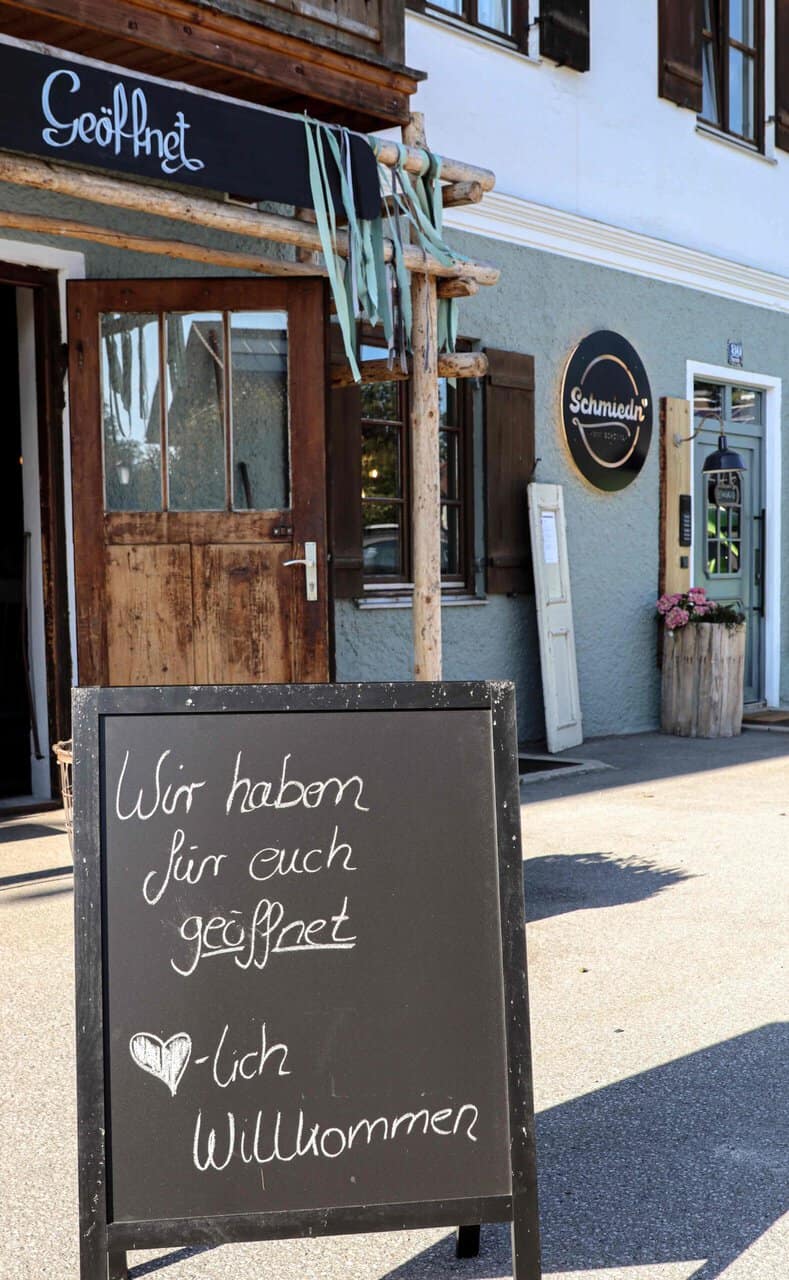 Geöffnet
Schmiedn
Wir haben
für euch
geöffnet
-lich
Willkommen